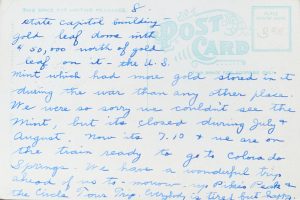 8.
State Capitol building
gold leaf dome with
$50,000 worth of gold
leaf on it - the U.S.
Mint which had more gold stored in it
during the war than any other place.
We were so sorry we couldn't see the
Mint, but its closed during July &
August. Now its 7.10 & we are on
the train ready to go to Colorado
Springs. We have a wonderful trip
ahead of us to-morrow up Pikes Peak &
the Circle Tour Trip. Everybody is tired but happy
THE
POST
CARD